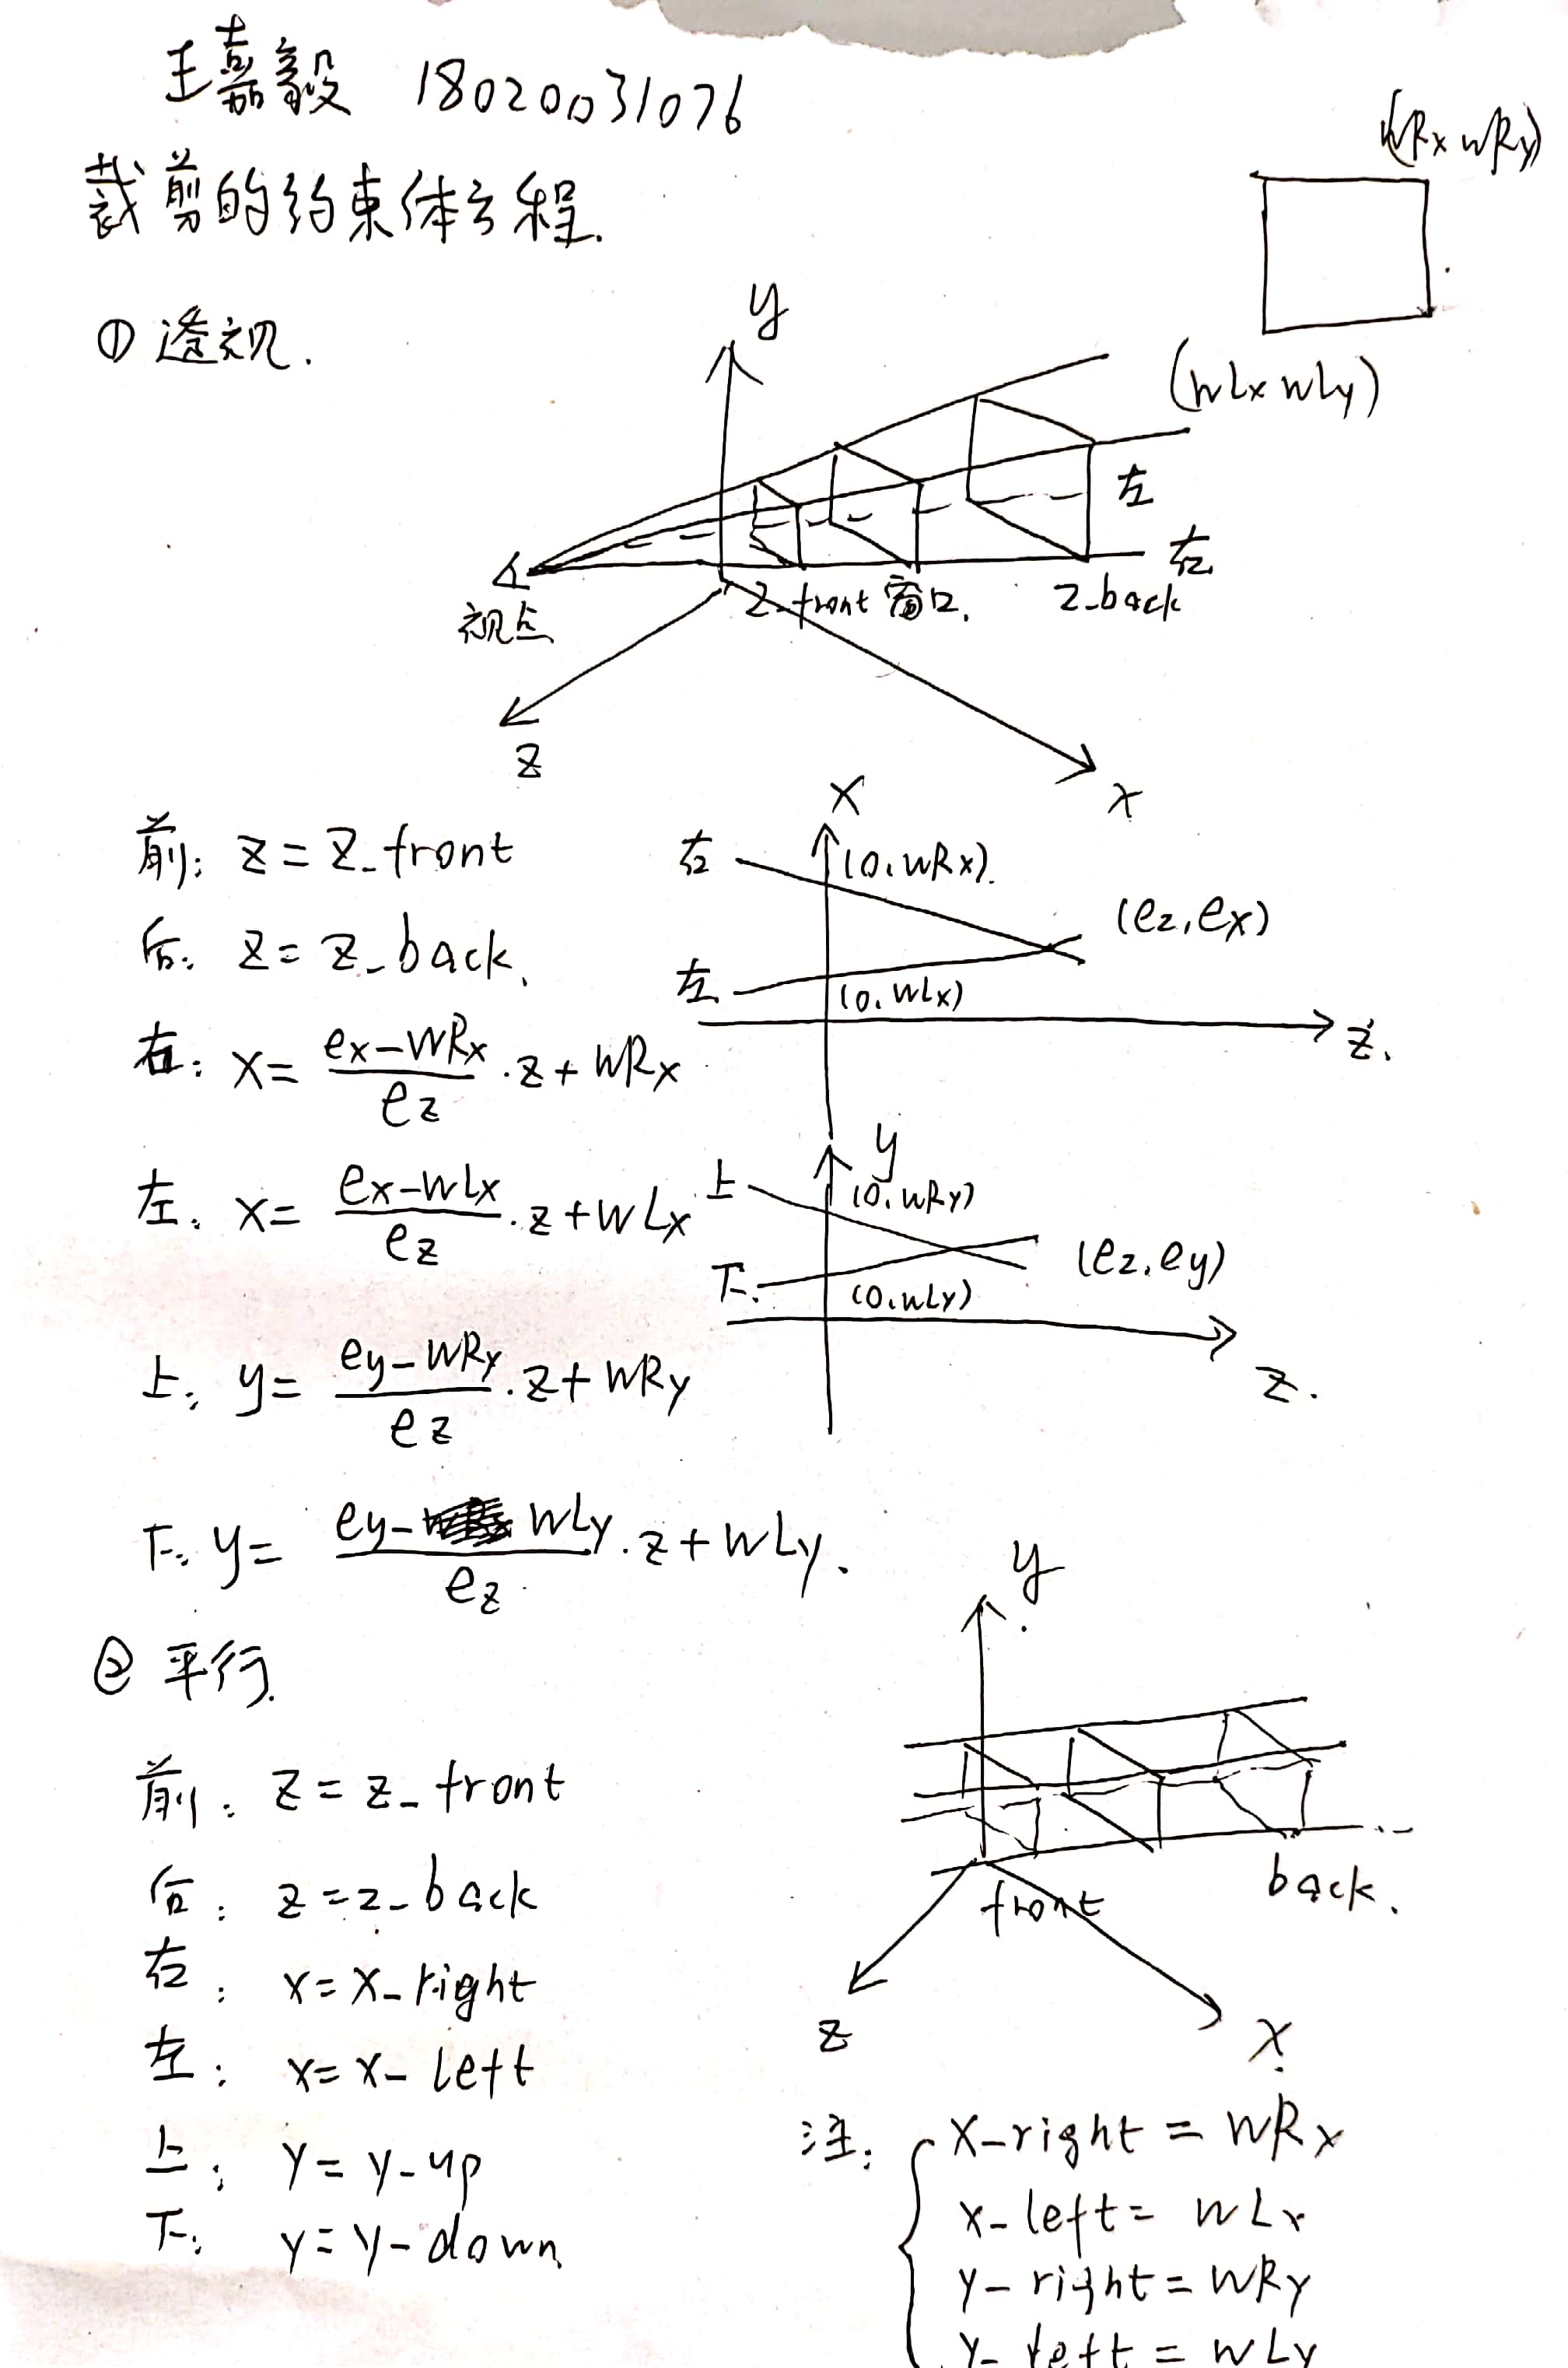 王嘉毅 18020031076
裁剪的约束体方程.
(wRx wRy)
(wLx wLy)
① 透视.
y
左
右
视点
z-front 窗口.
z-back
z
x
前: z = z-front
后: z = z-back.
右: x = (ex-wRx)/ez · z + wRx
左: x = (ex-wLx)/ez · z + wLx
上: y = (ey-wRy)/ez · z + wRy
下: y = (ey-wLy)/ez · z + wLy.
x
右
(0, wRx).
(ez, ex)
左
(0, wLx)
z.
y
上
(0, wRy)
(ez, ey)
下.
(0, wLy)
z.
② 平行.
前: z = z-front
后: z = z-back
右: x = x-right
左: x = x-left
上: y = y-up
下: y = y-down
y
front
back.
z
x
注:
x-right = wRx
x-left = wLx
y-right = wRy
y-left = wLy